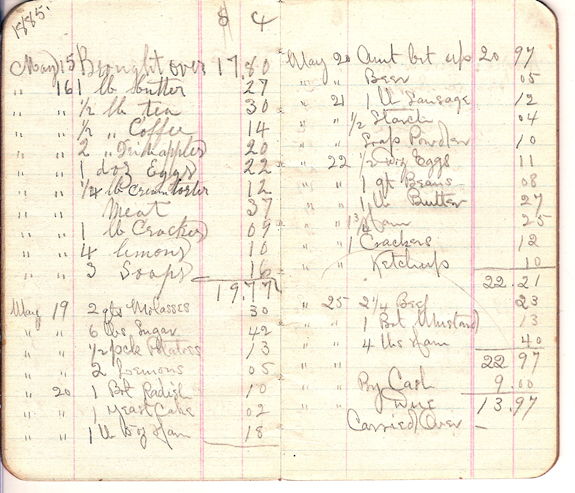 1885. $ ¢
May 15 Brought over 17.80
" 16 1 lb butter 27
" " ½ lb tea 30
" " ½ " Coffee 14
" " 2 " Pinapples 20
" " 1 doz Eggs 22
" " ¼ lb creamtarter 12
" " Meat 37
" " 1 lb Crackers 09
" " 4 lemons 10
" " 3 Soaps 16
19.77
May 19 2 qts Molasses 30
" " 6 lbs Sugar 42
" " ½ pck Potatoes 13
" " 2 Lemons 05
" 20 1 Bot Radish 10
" " 1 Yeast Cake 02
" " 1 lb Ham 18
May 20 Amt brt up 20.97
" " Beer 05
" 21 1 lb Sausage 12
" " ½ Starch 04
" " Soap Powder 10
" 22 ½ Doz Eggs 11
" " 1 qt Beans 08
" " 1 lb Butter 27
" " Ham 25
" " 1 Crackers 12
" " Ketchup 10
22.21
" 25 2¼ Beef 23
" " 1 Bot Mustard 13
" " 4 lbs Ham 40
22.97
By Cash 9.00
Due 13.97
Carried Over –